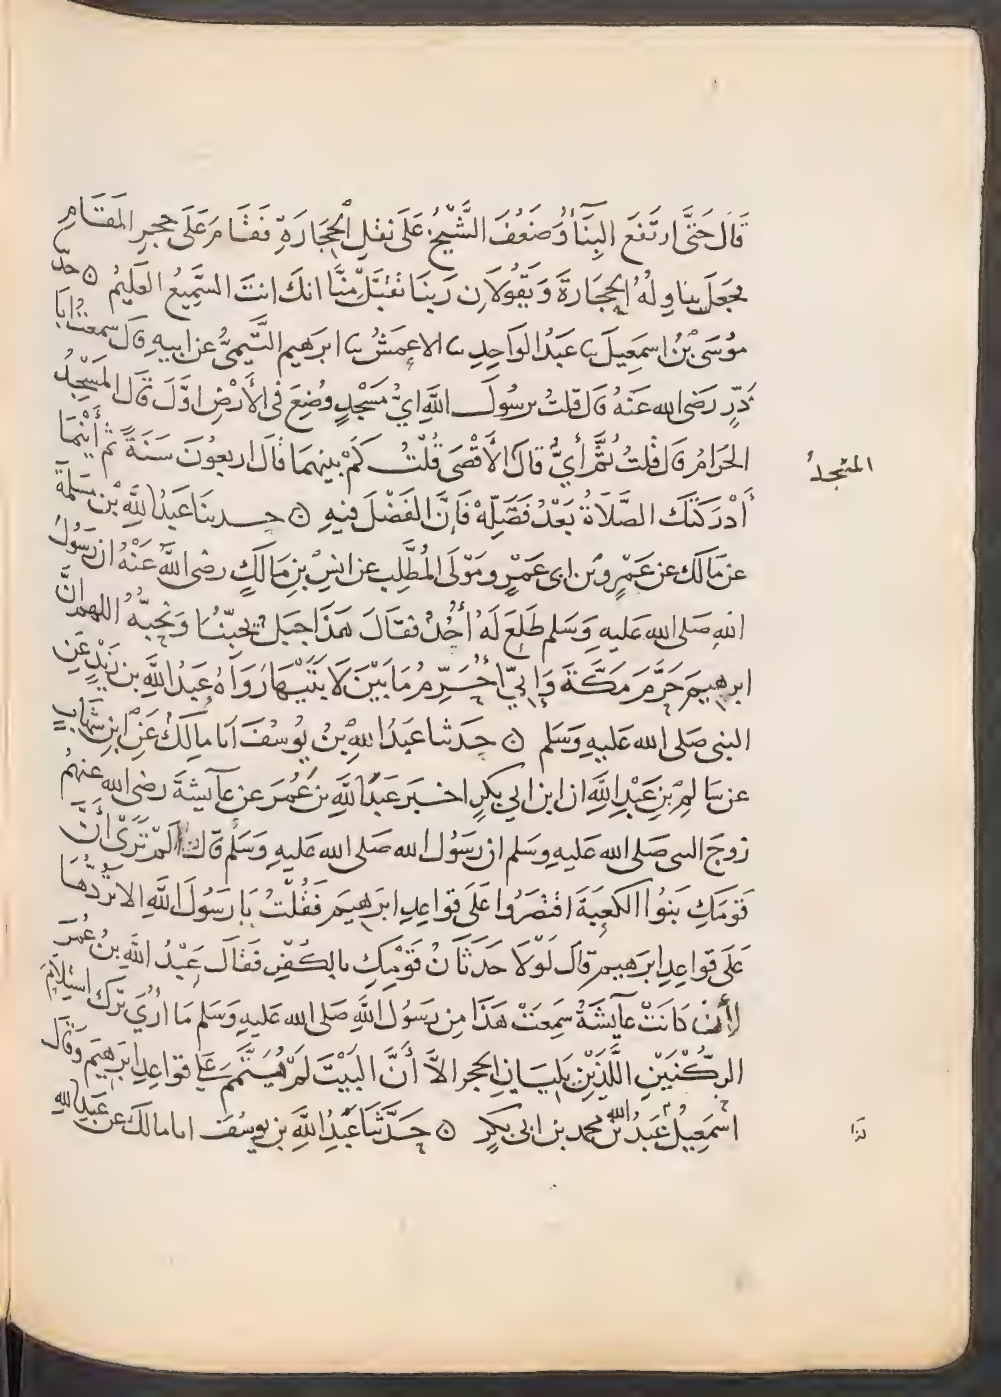 قَالَ حَتَّى ارتَفَعَ البِنَآُ وَضَعُفَ الشَّيْخُ عَلَى نقلِ الحِجَارَةِ فَقَامَ عَلَى حجرِ المَقَامِ
يجعَلَ يناوِلُهُ الحِجَارَةَ وَيَقُولَانِ رَبنَا تَقَبَّلْ مِنَّا انكَ انتَ السَّمِيعُ العَلِيمُ ۞ حدّ
مُوسَى بْنُ اسمَعِيلَ نا عَبدُ الوَاحِدِ نا الاعمَشُ نا ابرَهيم التَّيمِيُّ عن ابيهِ قال سمعتُ ابَا
ذَرٍّ رَضي الله عَنهُ قال قلتُ يرسُولَ اللهِ ايُّ مَسْجِدٍ وُضِعَ فى الأَرْضِ اوَّلَ قَالَ المَسْجِدُ
الحَرَامُ قَالَ قُلتُ ثُمَّ أَيُّ قالَ الأَقْصَى قُلْتُ كَمْ بينهمَا قَالَ اربعُونَ سَنَةً ثم أَيْنَمَا
المسْجدُ
أَدْرَكَتكَ الصَّلَاةُ بَعْدُ فَصَلِّهْ فَإِنَّ الفَضْلَ فيهِ ۞ حدثنا عَبدُ اللَّهِ بْن مَسلمَةَ
عن مَالك عن عَمْرِو بْن ابى عَمْرٍو مَوْلَى المُطَّلِب عن انسِ بْنِ مَالكٍ رضى اللهُ عَنْهُ ان رَسُولَ
اللهِ صَلى الله عَليهِ وَسَلم طَلَعَ لَهُ أُحُدٌ فقَالَ هَذَا جبَلٌ يُحِبّنَا وَنحِبُّهُ اللهم إنَّ
ابرهيمَ حَرَّمَ مَكَّةَ وَإنِيّ أُحَرِّمُ مَا بَيْنَ لَابَتَيْهَا رَوَاهُ عَبدُ اللَّهِ بن زَيْدٍ عَنِ
النبى صَلى الله عَليهِ وَسَلم ۞ حَدثنا عَبدُ اللهِ بْنُ يوسُفَ انا مالكٌ عَنْ ابنِ شهَابٍ
عن سَالمِ بْنِ عَبْدِ اللَّهِ ان ابن ابى بكرٍ اخبَر عَبدَ اللَّهِ بن عُمَرَ عن عآيشةَ رضى الله عنهُم
زوجَ النبى صَلى الله عَليهِ وَسَلم ان رَسُول الله صَلى الله عَليهِ وَسَلَّم قَالَ أَلَمْ تَرَىْ أَنَّ
قَوْمَكِ بَنَوُا الكَعبَةَ اقْتَصَرُوا عَلَى قواعِدِ ابرَهِيمَ فَقُلْتُ يَا رَسُولَ اللَّهِ الا تَرُدُّهَا
عَلَى قواعِدِ ابرَهيمَ قَالَ لَوْلَا حَدَثَانُ قَوْمِكِ بالكُفْرِ فَقَالَ عَبْدُ اللَّهِ بنُ عُمَرَ
لَئِنْ كَانَتْ عآيشَةُ سَمِعَتْ هَذَا مِن رَسُولِ اللَّهِ صَلى الله عَليهِ وَسَلم مَا أُرَى تَركَ استِلَامَ
الرُّكْنَيْنِ اللَّذَيْنِ يَلِيَانِ الحِجر الاَّ أَنَّ البَيْتَ لَمْ يُتَمَّمْ عَلَى قواعِدِ ابرَهيمَ وَقَالَ
اسْمَعِيلُ عَبدُ الله بن محمد بن ابى بكرٍ ۞ حَدَّثنَا عَبدُ اللَّهِ بن يوسُفَ انا مالك عن عَبدِ الله